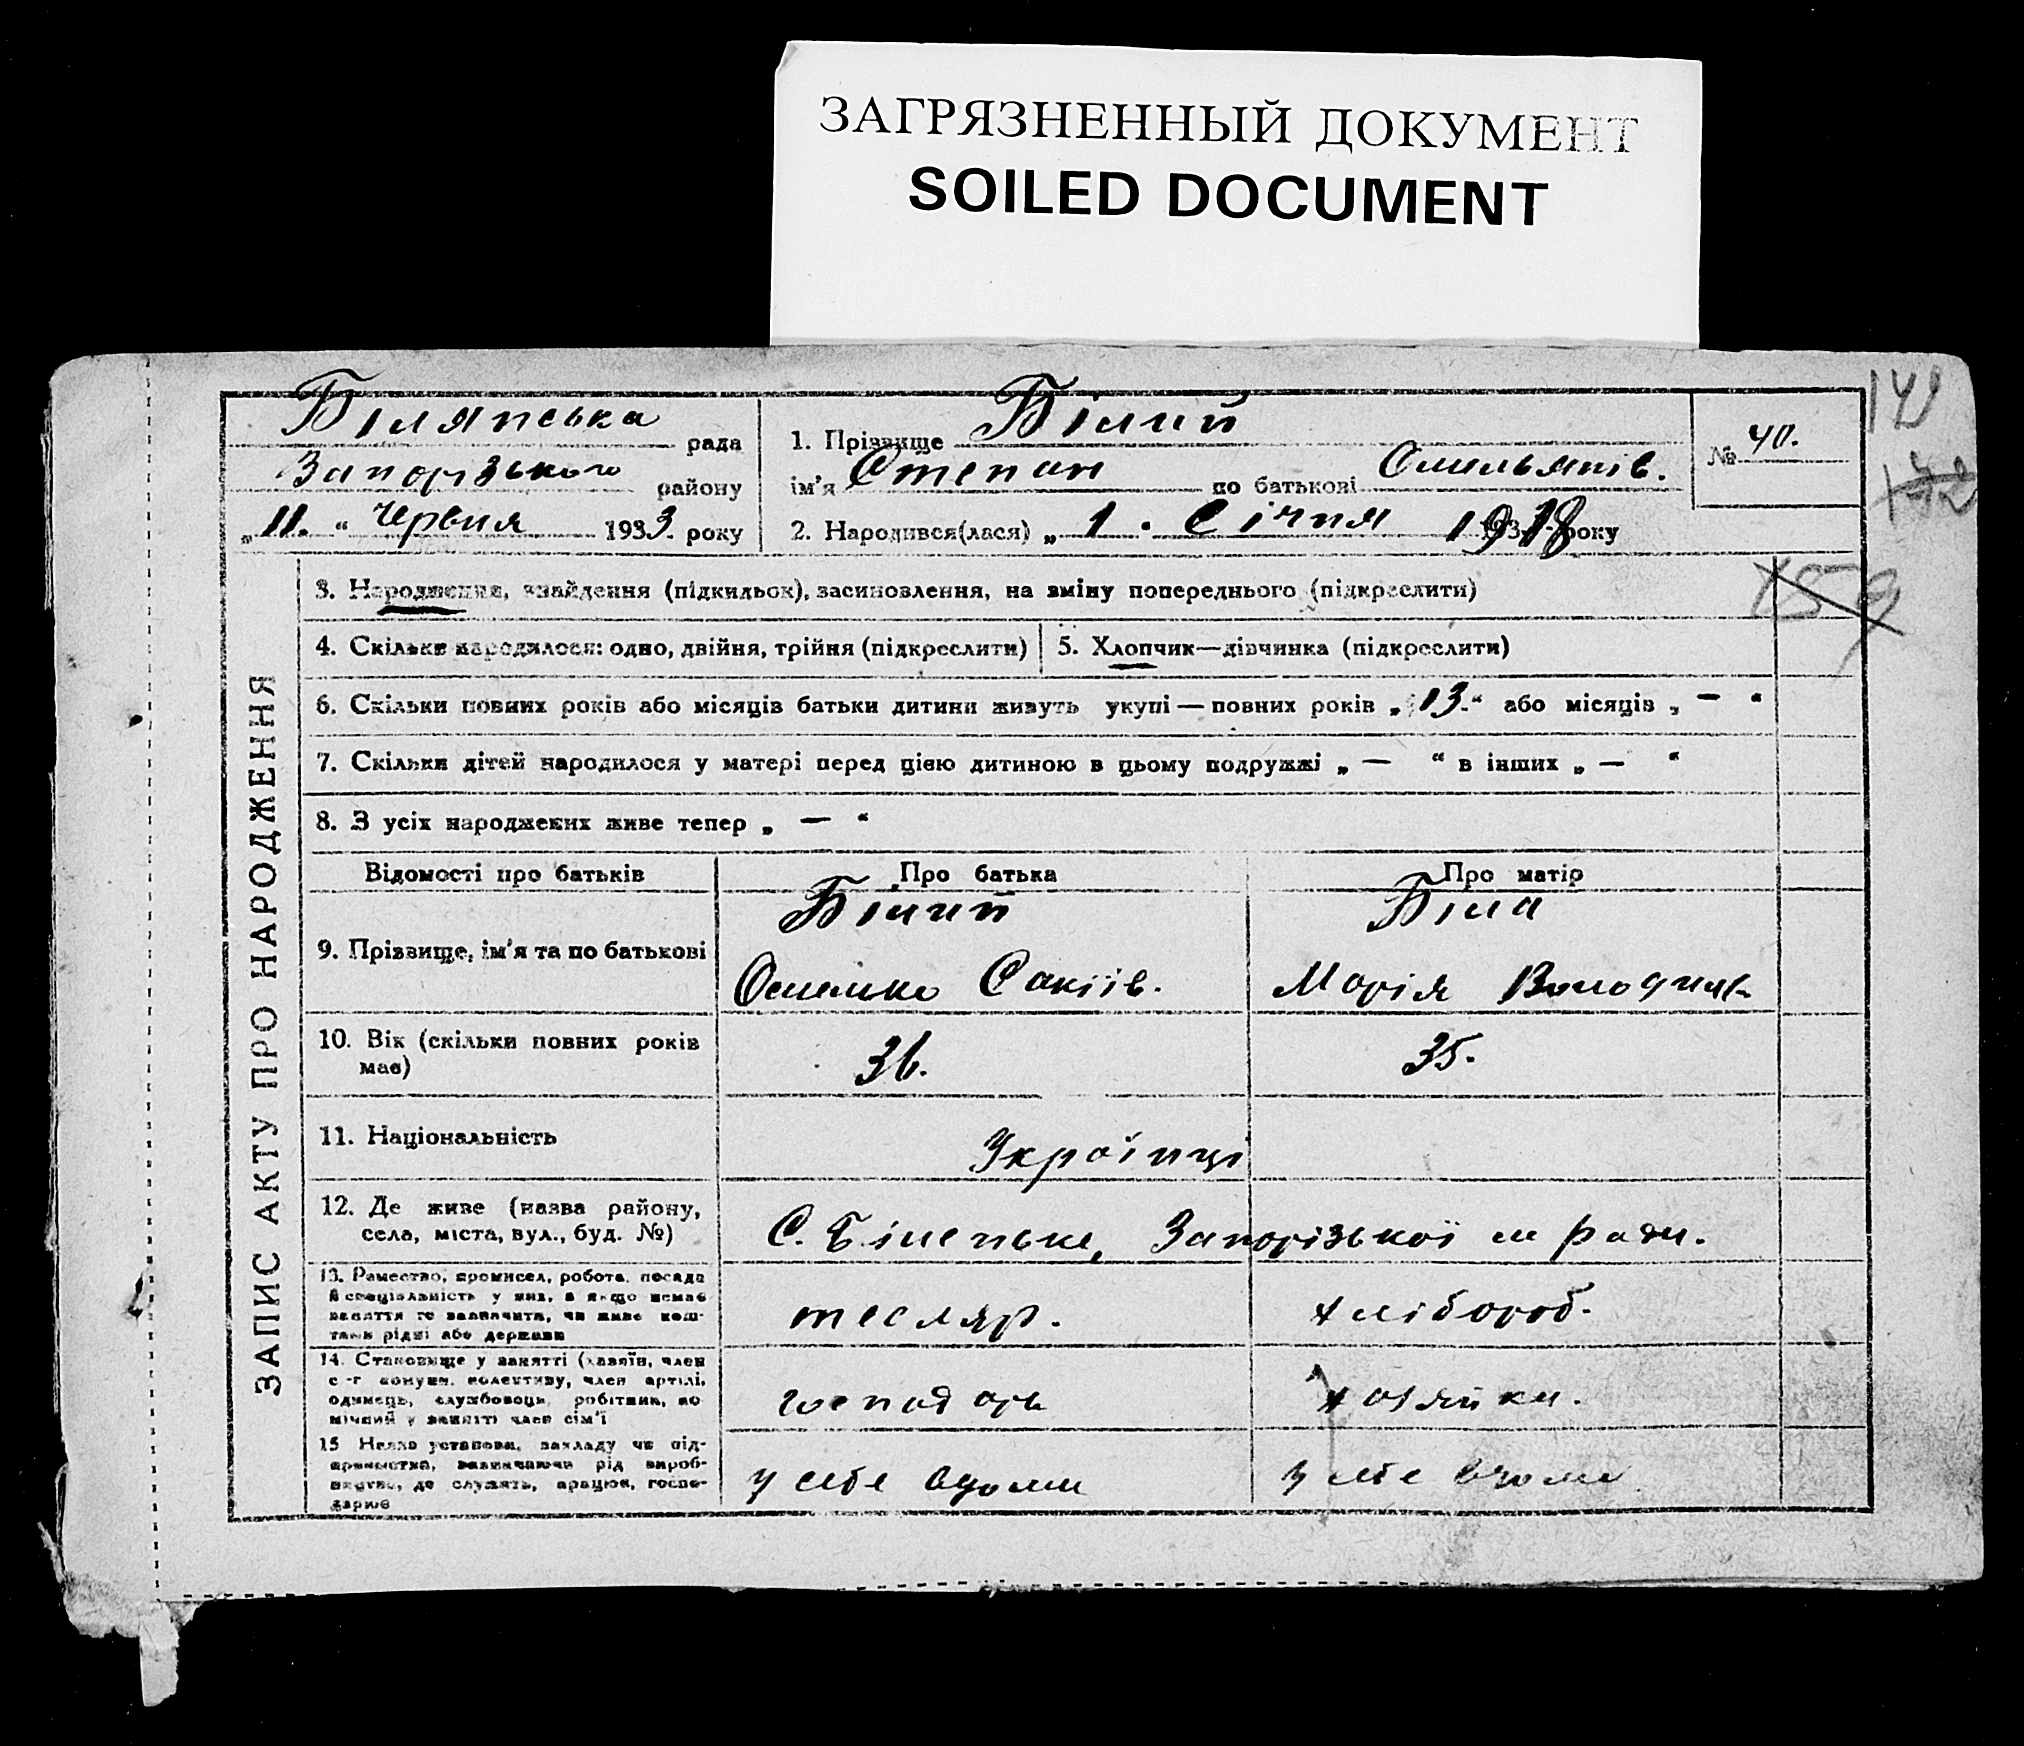 ЗАГРЯЗНЕННЫЙ ДОКУМЕНТ
SOILED DOCUMENT
Білянська рада
Запорізького району
„11.“ Червня 1933. року
1. Прізвище Білий
ім'я Степан по батькові Омельянів.
2. Народився(лася) „1. Січня 1918 року
№ 40.
141
142
159
ЗАПИС АКТУ ПРО НАРОДЖЕННЯ
3. Народження, знайдення (підкидьок), засиновлення, на зміну попереднього (підкреслити)
4. Скільки народилося: одно, двійня, трійня (підкреслити)
5. Хлопчик—дівчинка (підкреслити)
6. Скільки повних років або місяців батьки дитини живуть укупі — повних років „13.“ або місяців „ — “
7. Скільки дітей народилося у матері перед цією дитиною в цьому подружжі „ — “ в інших „ — “
8. З усіх народжених живе тепер „ — “
Відомості про батьків Про батька Про матір
9. Прізвище, ім'я та по батькові
Білий
Омелько Сакіїв.
Біла
Марія
10. Вік (скільки повних років
має)
36. 35.
11. Національність
Українці
12. Де живе (назва району,
села, міста, вул., буд. №)
С. Біленьке, Запорізької м ради.
13. Рамество, промисел, робота, посада
й спеціальність у них, а якщо немає
заняття то зазначити, чи живе кош-
тами рідні або держави
тесляр. хлібороб.
14. Становище у занятті (хазяїн, член
с.-г комуни, колективу, член артілі,
одинець, службовець, робітник, по
мічний у занятті член сім'ї
господарь хозяйка.
15 Назва установи, закладу чи під-
приємства, зазначаючи рід вироб-
ництва, де служить, працює, госпо-
дарює
у себе вдома у себе вдома